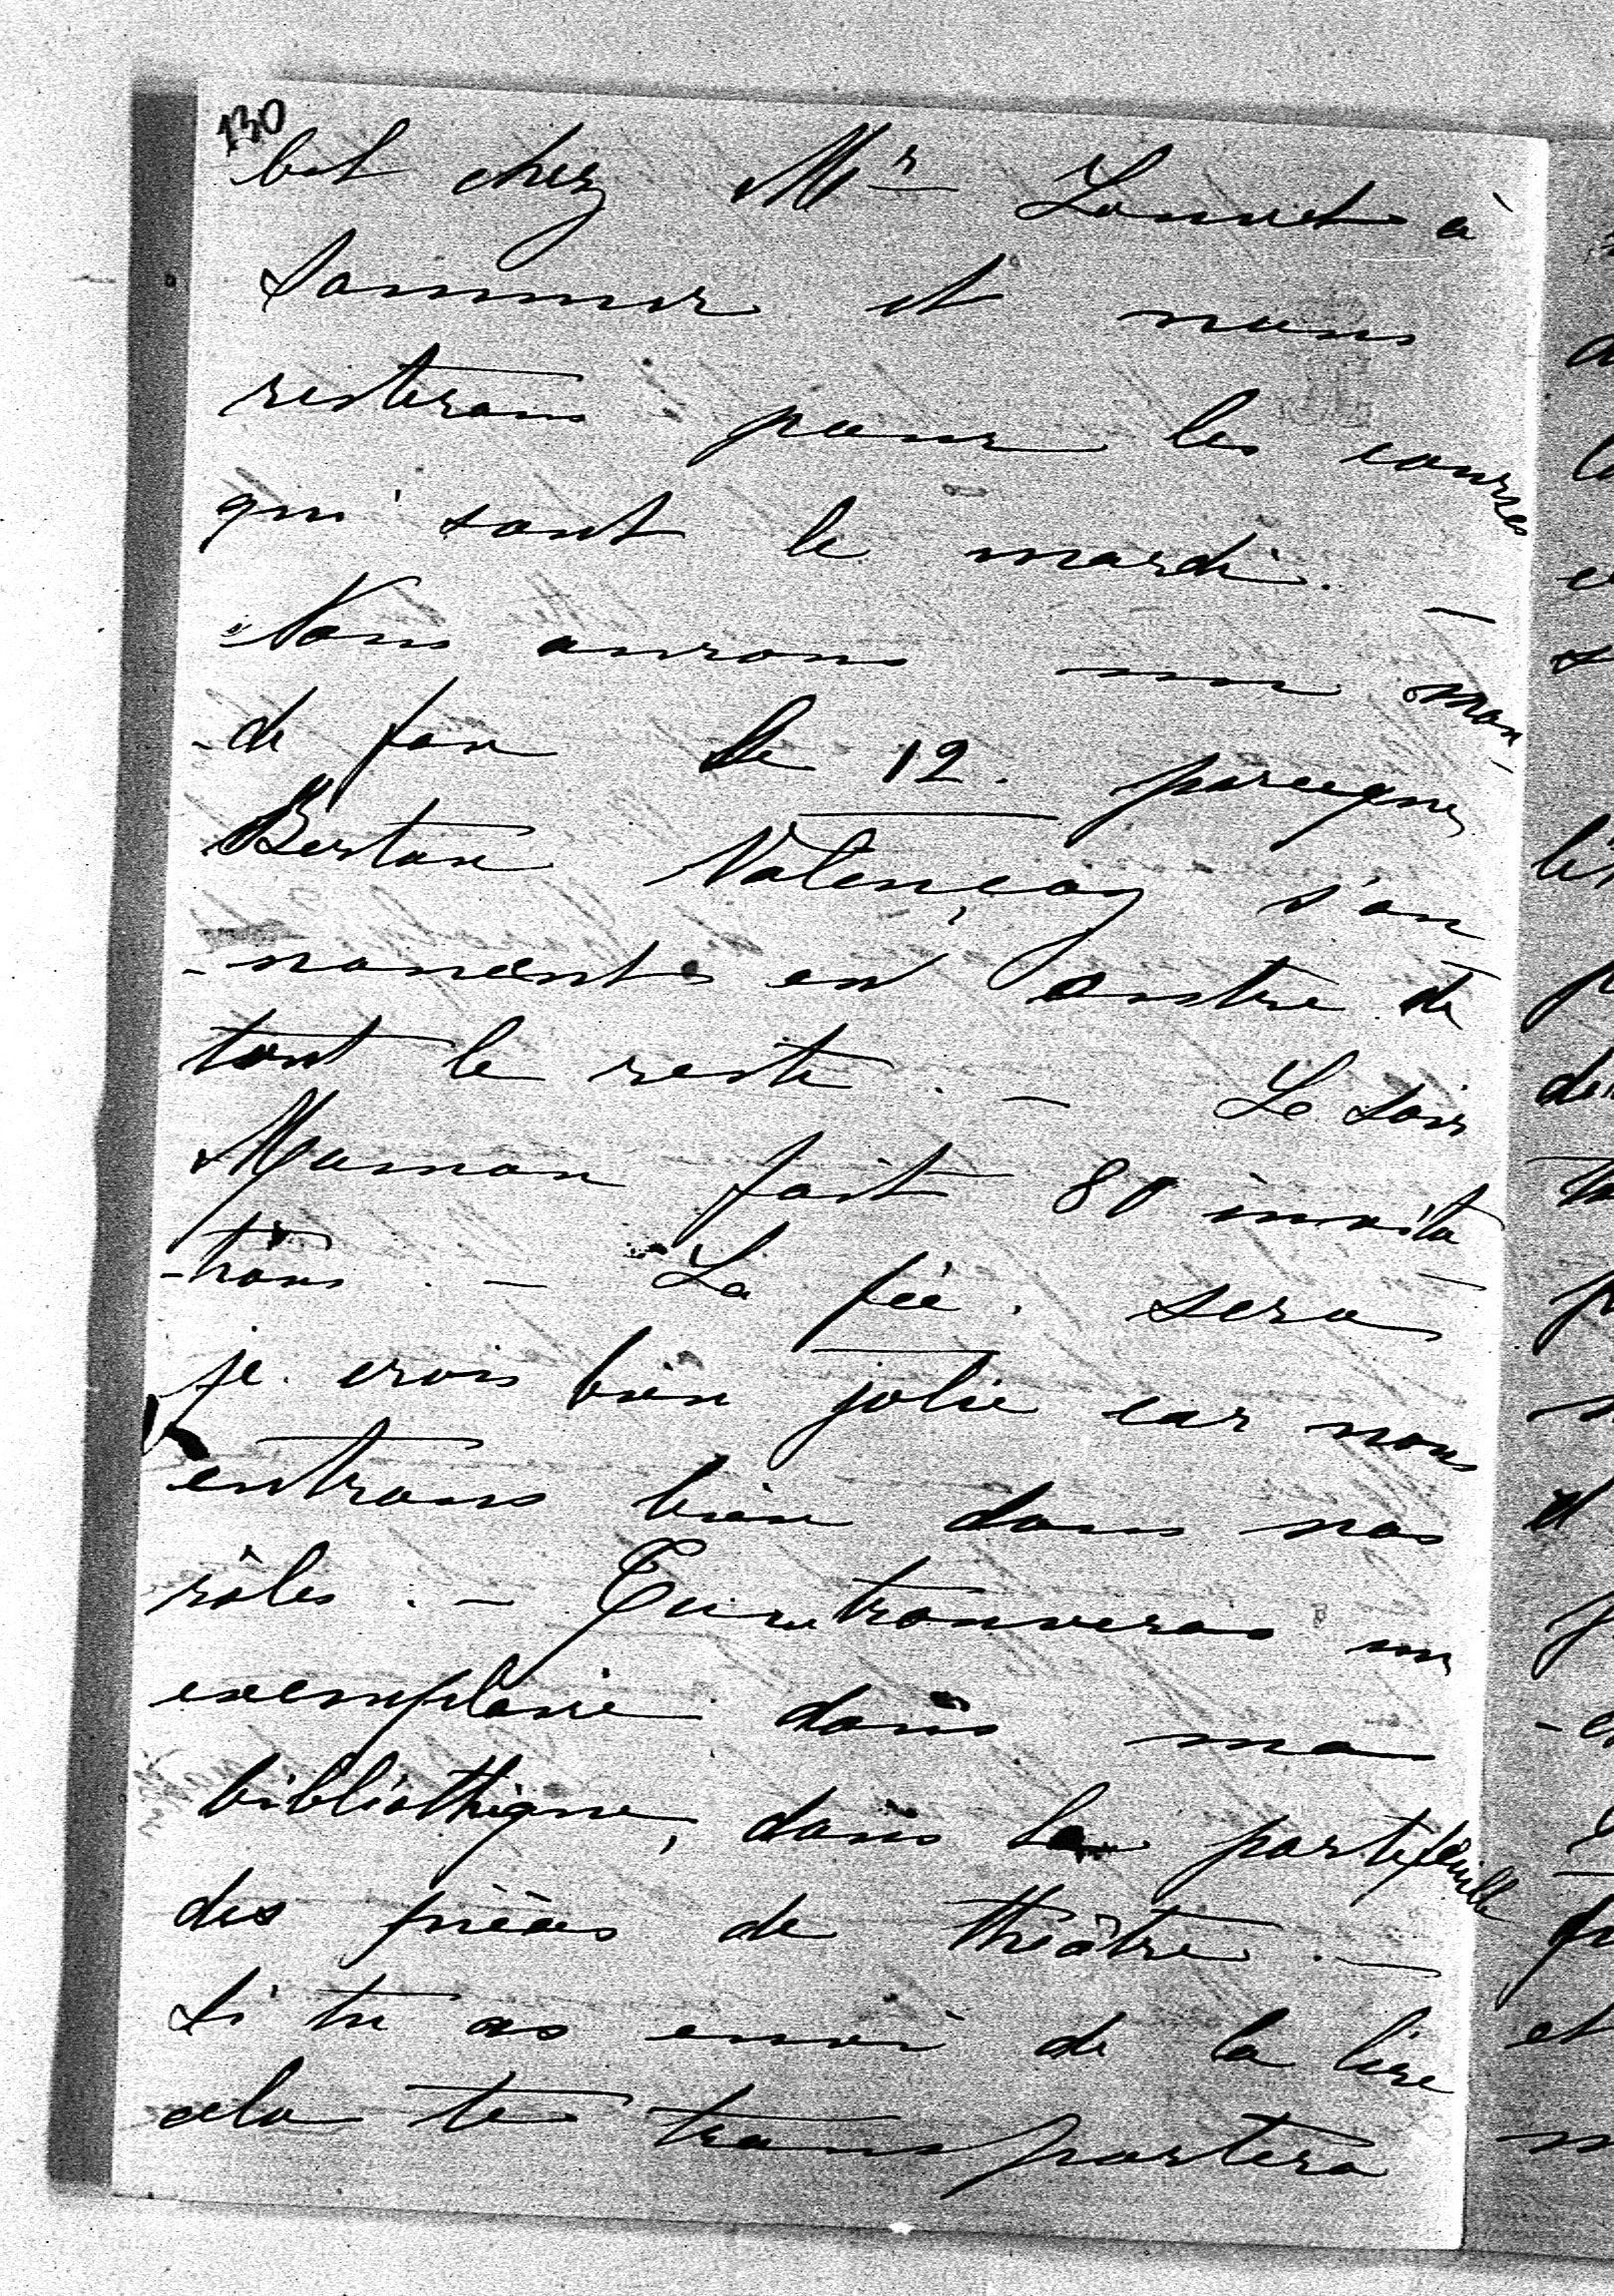 130
bal chez Mr Louvet à
Saumur et nous
resterons pour les courses
qui sont le mardi. —
Nous aurons un mon-
-de fou le 12. parceque
Breton Valençay s'an
-noncent en outre de
tout le reste. — Le soir
Maman fait 80 invita
-tions. — La fée. sera
je crois bien jolie car nous
entrons bien dans nos
rôles. — Tu trouveras un
exemplaire dans ma
bibliothèque, dans le portefeuille
des pièces de théâtre. —
Si tu as envie de la lire
cela te transportera